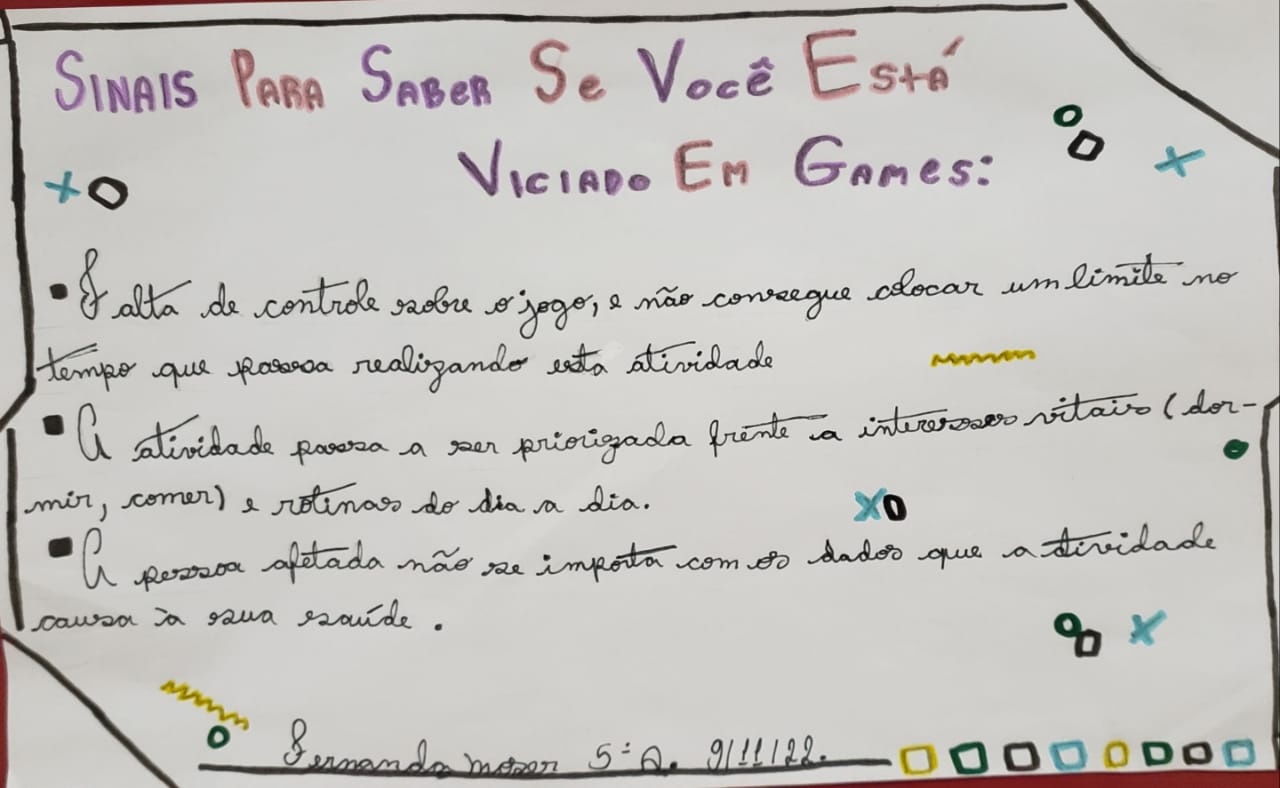 Sinais Para Saber Se Você Está
Viciado Em Games:
▪ Falta de controle sobre o jogo, e não consegue colocar um limite no
tempo que passa realizando esta atividade
▪ A atividade passa a ser priorizada frente a interesses vitais (dor-
mir, comer) e rotinas do dia a dia.
▪ A pessoa afetada não se importa com os dados que a atividade
causa à sua saúde.
Fernanda Moser 5ª A. 9/11/22.